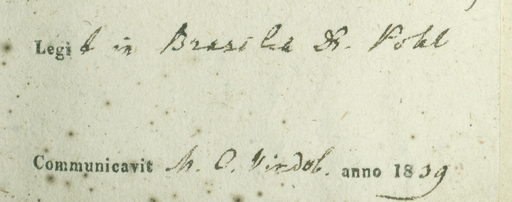 Legit in Brasilia Dr. Pohl
Communicavit M. C. Vindob. anno 1839